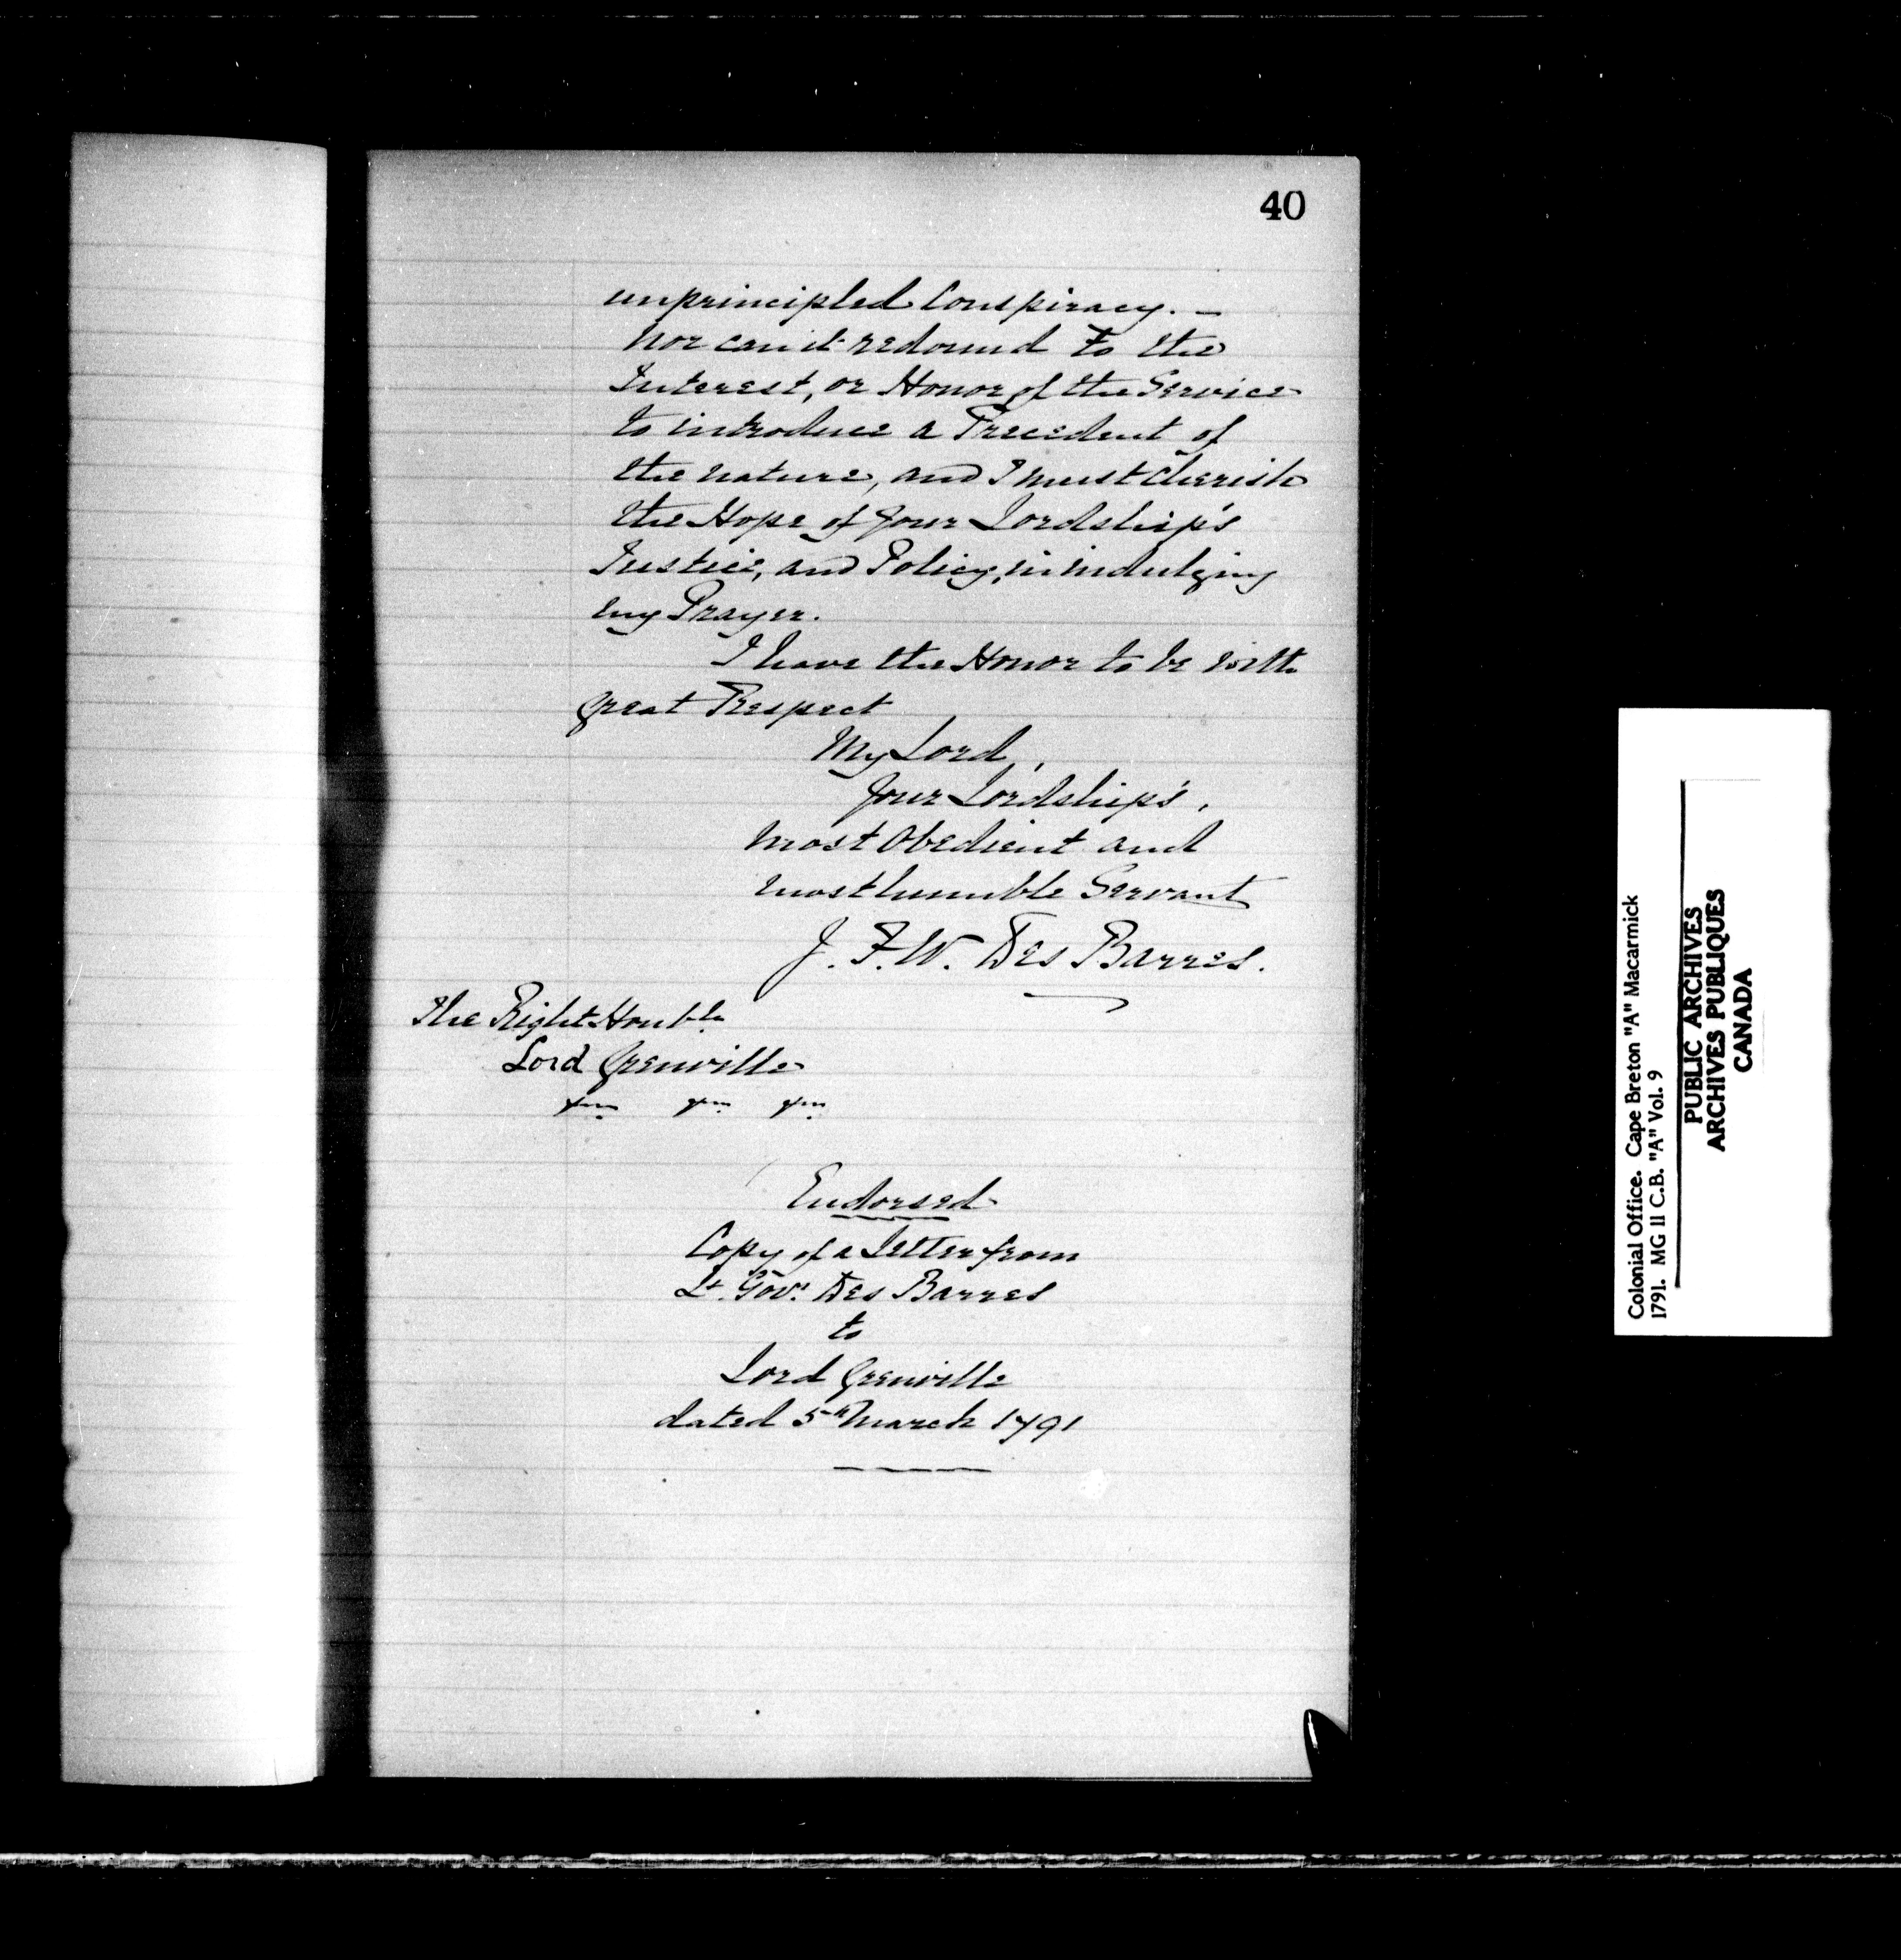 40
unprincipled Conspiracy. –
Nor can it redound to the
Interest, or Honor of the Service
to introduce a Precedent of
the nature, and I must cherish
the Hope of Your Lordship's
Justice, and Policy, in indulging
my Prayer.
I have the Honor to be with
great Respect
My Lord,
Your Lordship's,
most Obedient and
most humble Servant
J. F. W. Des Barres.
The Right Honble
Lord Grenville
Endorsed
Copy of a Letter from
Lt. Govr. Des Barres
to
Lord Grenville
dated 5th March 1791
Colonial Office. Cape Breton "A" Macarmick
1791. MG 11 C.B. "A" Vol. 9
PUBLIC ARCHIVES
ARCHIVES PUBLIQUES
CANADA